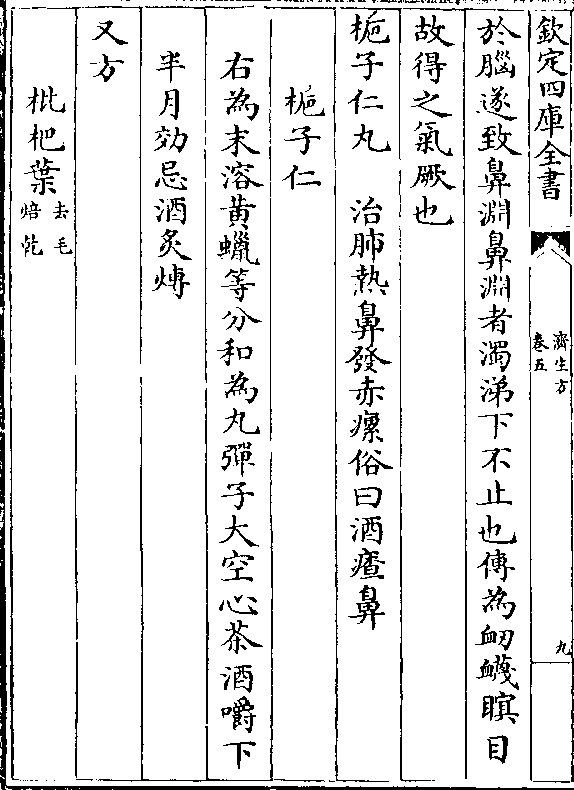 欽定四庫全書
濟生方
卷五
九
於腦遂致鼻淵鼻淵者濁涕下不止也傳為衂衊瞑目
故得之氣厥也
梔子仁丸　治肺熱鼻發赤瘰俗曰酒㾴鼻
梔子仁
右為末溶黃蠟等分和為丸彈子大空心茶酒嚼下
半月効忌酒炙煿
又方
枇杷葉去毛焙乾